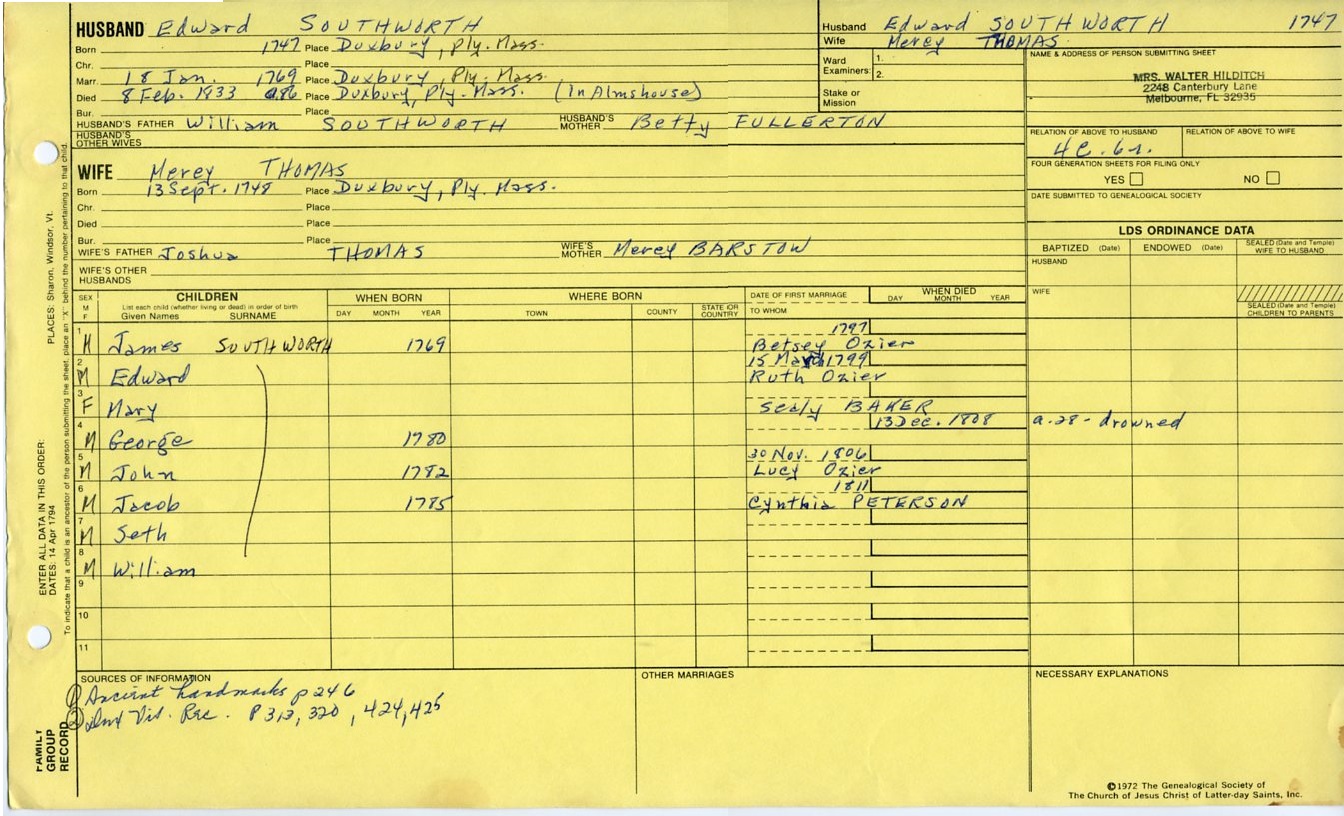 HUSBAND Edward SOUTHWORTH
Born 1747 Place Duxbury, Ply. Mass.
Chr. Place
Marr. 18 Jan. 1769 Place Duxbury, Ply. Mass.
Died 8 Feb. 1833 a86 Place Duxbury, Ply. Mass. (In Almshouse)
Bur. Place
HUSBAND'S FATHER William SOUTHWORTH HUSBAND'S MOTHER Betty FULLERTON
HUSBAND'S OTHER WIVES
WIFE Mercy THOMAS
Born 13 Sept. 1748 Place Duxbury, Ply. Mass.
Chr. Place
Died Place
Bur. Place
WIFE'S FATHER Joshua THOMAS WIFE'S MOTHER Mercy BARSTOW
WIFE'S OTHER HUSBANDS
Husband Edward SOUTHWORTH 1747
Wife Mercy THOMAS
Ward Examiners: 1. 2.
Stake or Mission
NAME & ADDRESS OF PERSON SUBMITTING SHEET
MRS. WALTER HILDITCH
2248 Canterbury Lane
Melbourne, FL 32935
RELATION OF ABOVE TO HUSBAND RELATION OF ABOVE TO WIFE
4C. 6r.
FOUR GENERATION SHEETS FOR FILING ONLY
YES NO
DATE SUBMITTED TO GENEALOGICAL SOCIETY
LDS ORDINANCE DATA
BAPTIZED (Date) ENDOWED (Date) SEALED (Date and Temple) WIFE TO HUSBAND
HUSBAND
WIFE
SEALED (Date and Temple) CHILDREN TO PARENTS
SEX M F CHILDREN WHEN BORN WHERE BORN DATE OF FIRST MARRIAGE WHEN DIED
List each child (whether living or dead) in order of birth
Given Names SURNAME DAY MONTH YEAR TOWN COUNTY STATE OR COUNTRY TO WHOM DAY MONTH YEAR
1 M James SOUTHWORTH 1769 1797 Betsey Ozier
2 M Edward 15 March 1799 Ruth Ozier
3 F Mary Sealy BAKER
4 M George 1780 13 Dec. 1808 a.28 - drowned
5 M John 1782 30 Nov. 1806 Lucy Ozier
6 M Jacob 1785 1811 Cynthia PETERSON
7 M Seth
8 M William
9
10
11
SOURCES OF INFORMATION
① Ancient Landmarks p 246
② Dux Vit. Rec. P 313, 320, 424, 425
OTHER MARRIAGES
NECESSARY EXPLANATIONS
©1972 The Genealogical Society of
The Church of Jesus Christ of Latter-day Saints, Inc.
FAMILY GROUP RECORD
ENTER ALL DATA IN THIS ORDER: PLACES: Sharon, Windsor, Vt.
DATES: 14 Apr 1794
To indicate that a child is an ancestor of the person submitting the sheet, place an "X" behind the number pertaining to that child.